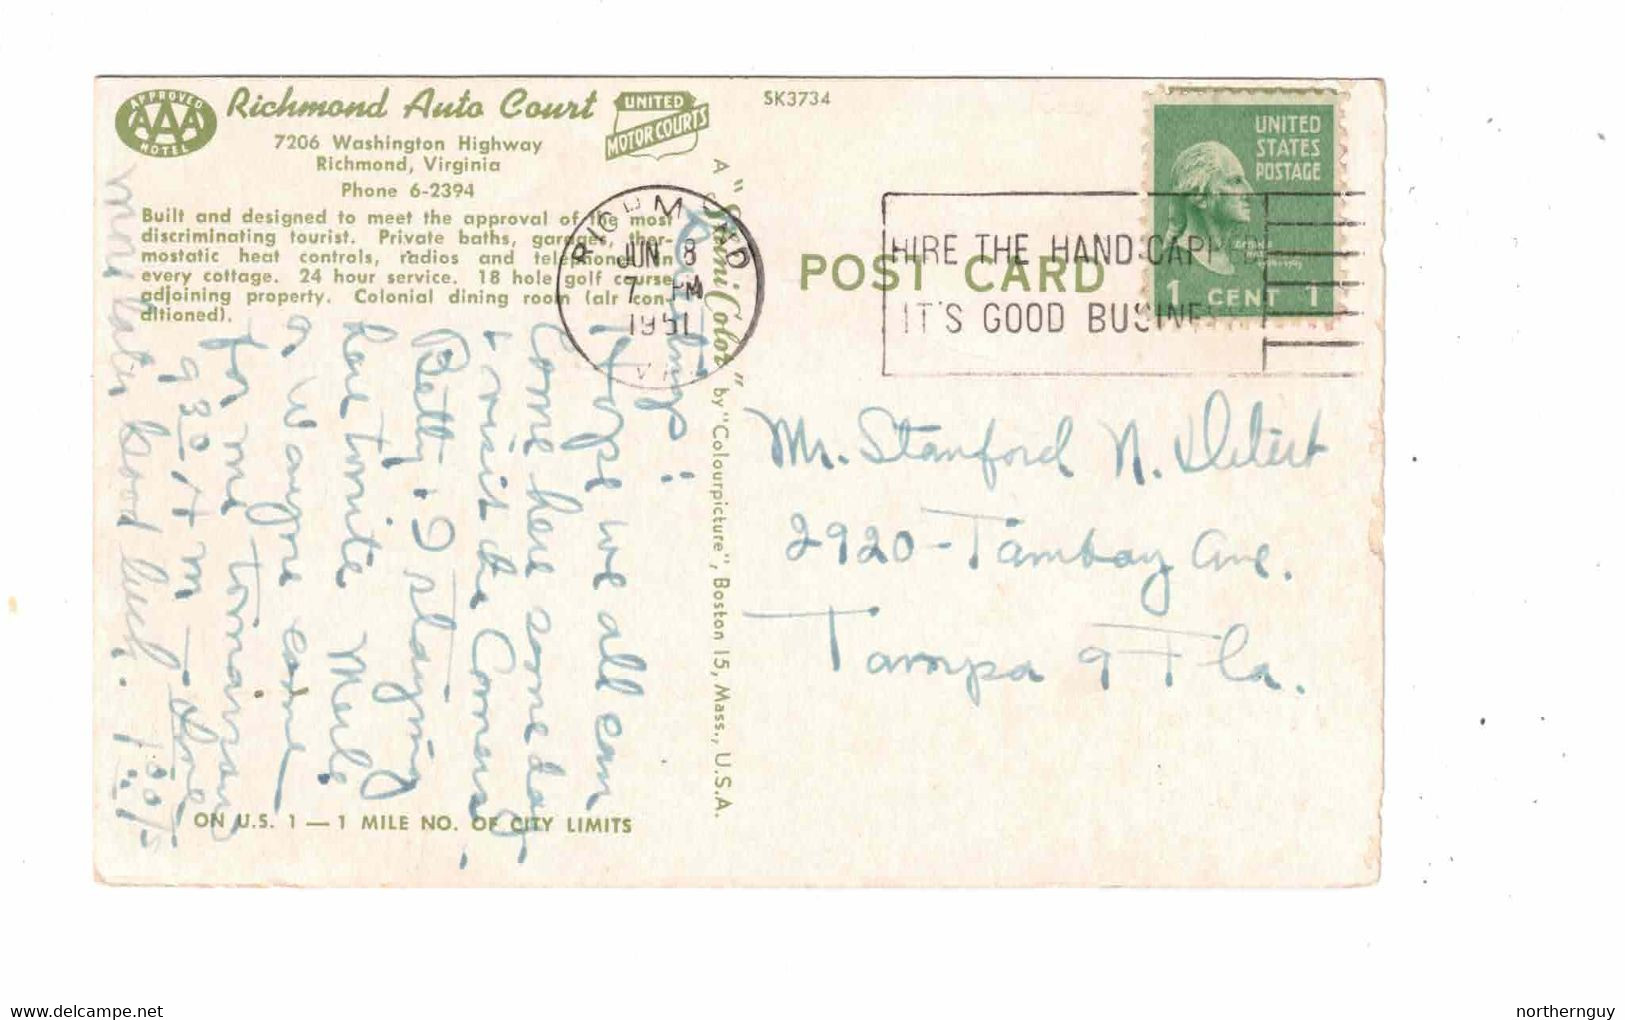 APPROVED
AAA
HOTEL
Richmond Auto Court
UNITED
MOTOR COURTS
7206 Washington Highway
Richmond, Virginia
Phone 6-2394
Built and designed to meet the approval of the most
discriminating tourist. Private baths, garages, ther-
mostatic heat controls, radios and telephone in
every cottage. 24 hour service. 18 hole golf course
adjoining property. Colonial dining room (air con-
ditioned).
I hope we all can
Come here some day
& visit the
Betty. I staying
here tonite Merle
& Wayne come
for me tomorrow
9 30 A M
later Good luck.
ON U.S. 1 — 1 MILE NO. OF CITY LIMITS
A "SuniColor" by "Colourpicture", Boston 15, Mass., U.S.A.
SK3734
POST CARD
RICHMOND
JUN 8
7 PM
1951
VA.
HIRE THE HANDICAPPED
IT'S GOOD BUSINESS
UNITED
STATES
POSTAGE
1 CENT 1
Mr. Stanford N.
2920 - Tambay Ave.
Tampa 9 Fla.
www.delcampe.net
northernguy